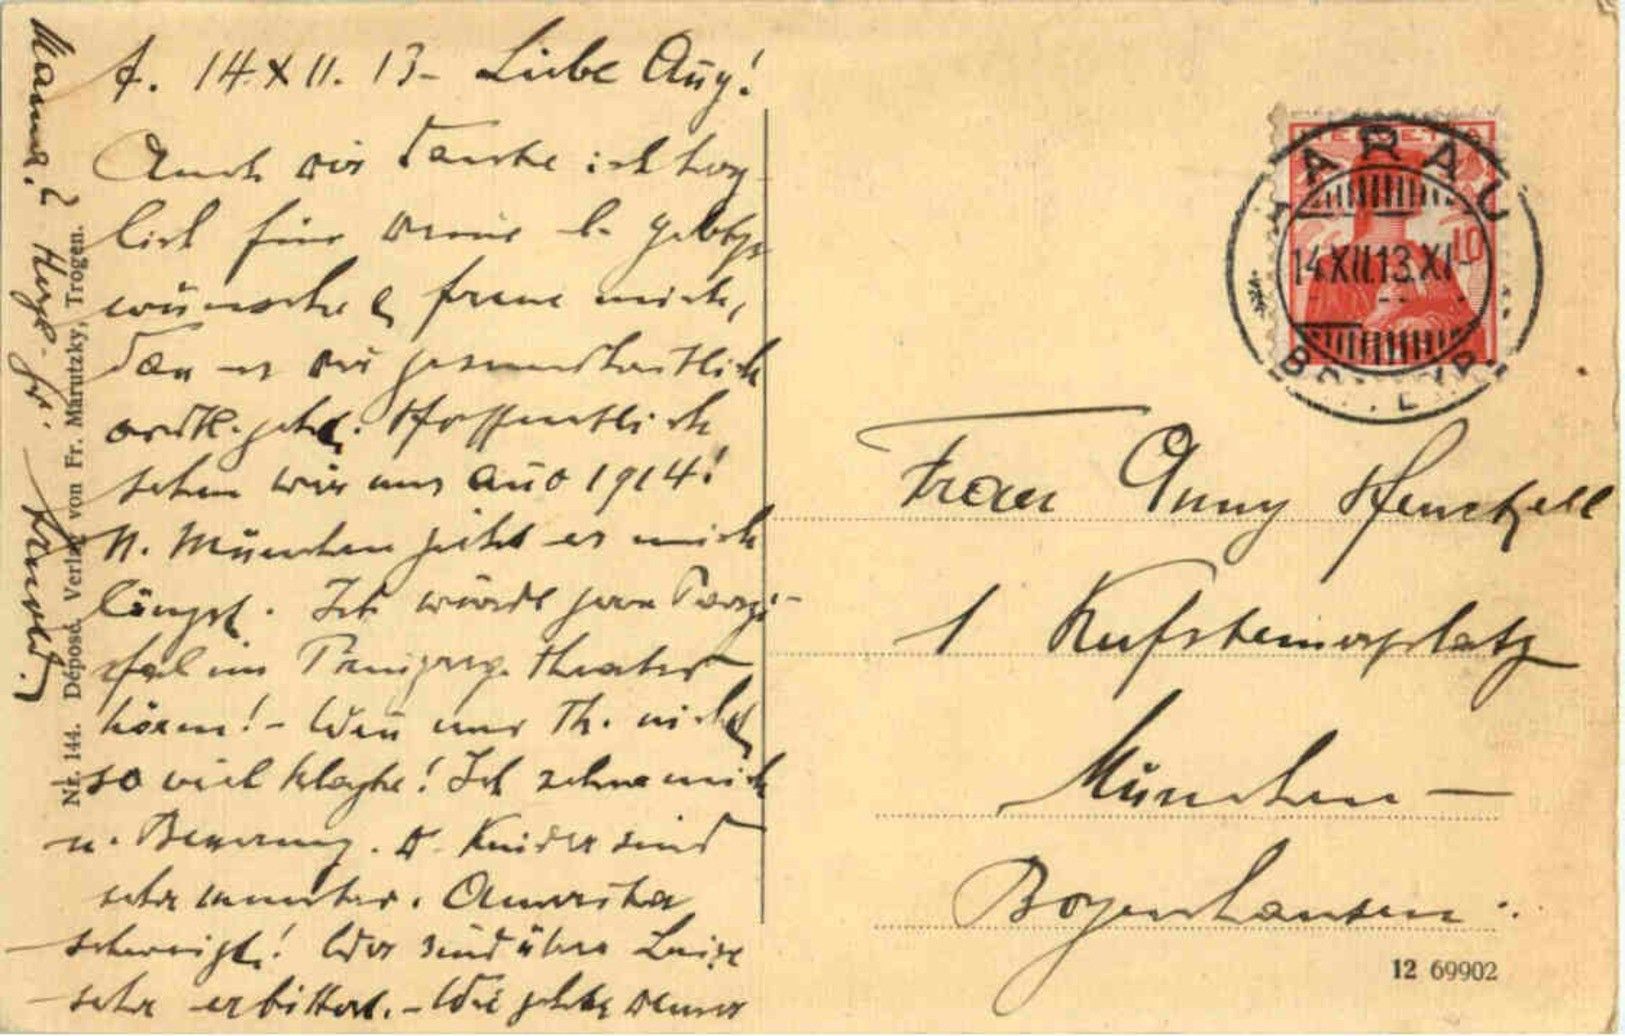 A. 14.XII.13- Liebe Anny!
Auch dir danke ich herz-
lich für deine l. Gebtgs
wünsche & freue mich,
daß es dir gesundheitlich
ordtl. geht. Hoffentlich
sehen wir uns anno 1914!
N. München zieht es mich
längst. Ich würde gern Parsi-
fal im Prinzreg. Theater
hören! - Wenn nur Th. nicht
so viel klagte! Ich sehne mich
n. Befreiung. D. Kinder sind
sehr munter. Amerika
schweigt! Wir sind über Luise
sehr erbittert. - Wie geht es deiner
Mama? Herzl. Gr.
Nr. 144. Déposé. Verlag von Fr. Marutzky, Trogen.
HELVETIA
10
AARAU
14.XII.13.XI-
Frau Anny Henckell
1 Kufsteinerplatz
München -
Bogenhausen.
12 69902